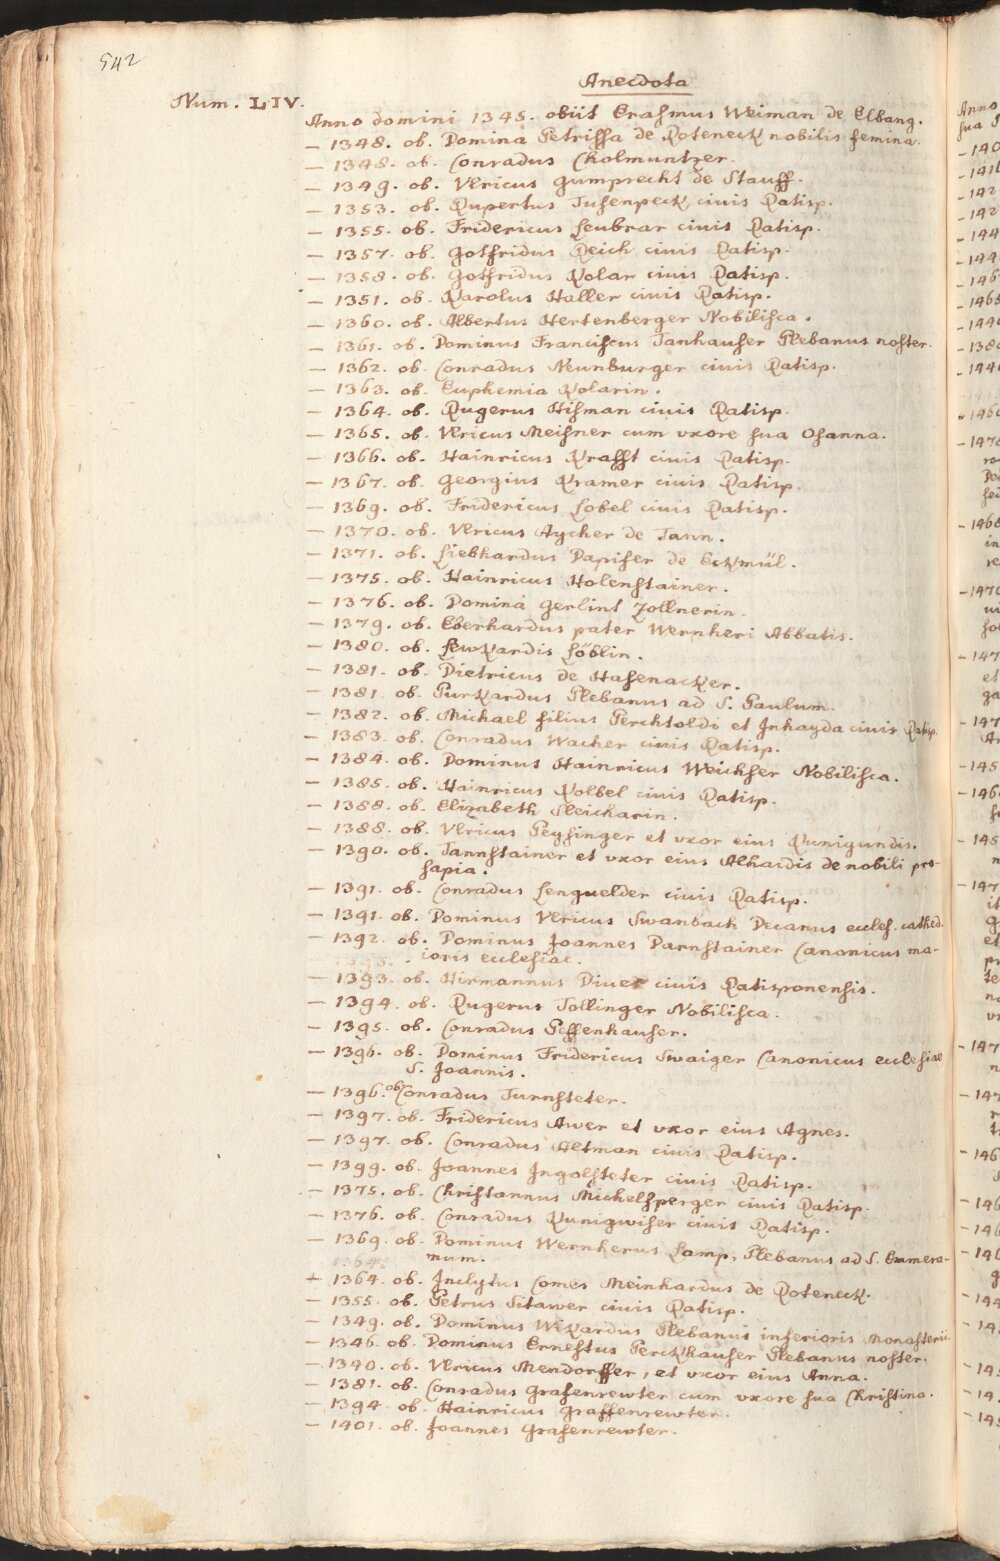 542
Anecdota
Num. LIV.
Anno domini 1345. obiit Erasmus Weiman de Elbang.
— 1348. ob. Domina Petrissa de Roteneck nobilis femina.
— 1348. ob. Conradus Cholmuntzer.
— 1349. ob. Vlricus Gumprecht de Stauff.
— 1353. ob. Rupertus Tusenpeck civis Ratisp.
— 1355. ob. Fridericus Leubrar civis Ratisp.
— 1357. ob. Gotfridus Reich civis Ratisp.
— 1358. ob. Gotfridus Kolar civis Ratisp.
— 1351. ob. Karolus Haller civis Ratisp.
— 1360. ob. Albertus Hertenberger Nobilista.
— 1361. ob. Dominus Franciscus Tanhauser Plebanus noster.
— 1362. ob. Conradus Neunburger civis Ratisp.
— 1363. ob. Euphemia Kolarin.
— 1364. ob. Rugerus Hisman civis Ratisp.
— 1365. ob. Vlricus Meisner cum vxore sua Osanna.
— 1366. ob. Hainricus Krafft civis Ratisp.
— 1367. ob. Georgius Kramer civis Ratisp.
— 1369. ob. Fridericus Lobel civis Ratisp.
— 1370. ob. Vlricus Aycher de Tann.
— 1371. ob. Liebhardus Dapifer de Eckmül.
— 1375. ob. Hainricus Holenstainer.
— 1376. ob. Domina Gerlint Zollnerin.
— 1379. ob. Eberhardus pater Wernheri Abbatis.
— 1380. ob. Lewkardis Löblin.
— 1381. ob. Dietricus de Hasenacker.
— 1381. ob. Purkardus Plebanus ad S. Paulum.
— 1382. ob. Michael filius Perchtoldi et Inkayda civis Ratisp.
— 1383. ob. Conradus Wacher civis Ratisp.
— 1384. ob. Dominus Hainricus Weichser Nobilista.
— 1385. ob. Hainricus Kolbel civis Ratisp.
— 1388. ob. Elizabeth Sleicharin.
— 1388. ob. Vlricus Peysinger et vxor eius Kunigundis.
— 1390. ob. Tannstainer et vxor eius Alhaidis de nobili pro-
sapia.
— 1391. ob. Conradus Lenguelder civis Ratisp.
— 1391. ob. Dominus Vlricus Swanbach Decanus eccles. cathed.
— 1392. ob. Dominus Joannes Parnstainer Canonicus ma-
ioris ecclesiae.
— 1393. ob. Hirmannus Diuer civis Ratisponensis.
— 1394. ob. Rugerus Tollinger Nobilista.
— 1395. ob. Conradus Peffenhauser.
— 1396. ob. Dominus Fridericus Swaiger Canonicus ecclesiae
S. Joannis.
— 1396. ob. Conradus Turnsteter.
— 1397. ob. Fridericus Awer et vxor eius Agnes.
— 1397. ob. Conradus Altman civis Ratisp.
— 1399. ob. Joannes Ingolsteter civis Ratisp.
— 1375. ob. Christannus Michelsperger civis Ratisp.
— 1376. ob. Conradus Kunigwiser civis Ratisp.
— 1369. ob. Dominus Wernherus Lamp, Plebanus ad S. Emmera-
mum.
— 1364. ob. Inclytus Comes Meinhardus de Roteneck.
— 1355. ob. Petrus Sitawer civis Ratisp.
— 1349. ob. Dominus Wikardus Plebanus inferioris Monasterii.
— 1346. ob. Dominus Ernestus Perckhauser Plebanus noster.
— 1340. ob. Vlricus Mendorffer, et vxor eius Anna.
— 1381. ob. Conradus Grafenrewter cum vxore sua Christina.
— 1394. ob. Hainricus Graffenrewter.
— 1401. ob. Joannes Grafenrewter.